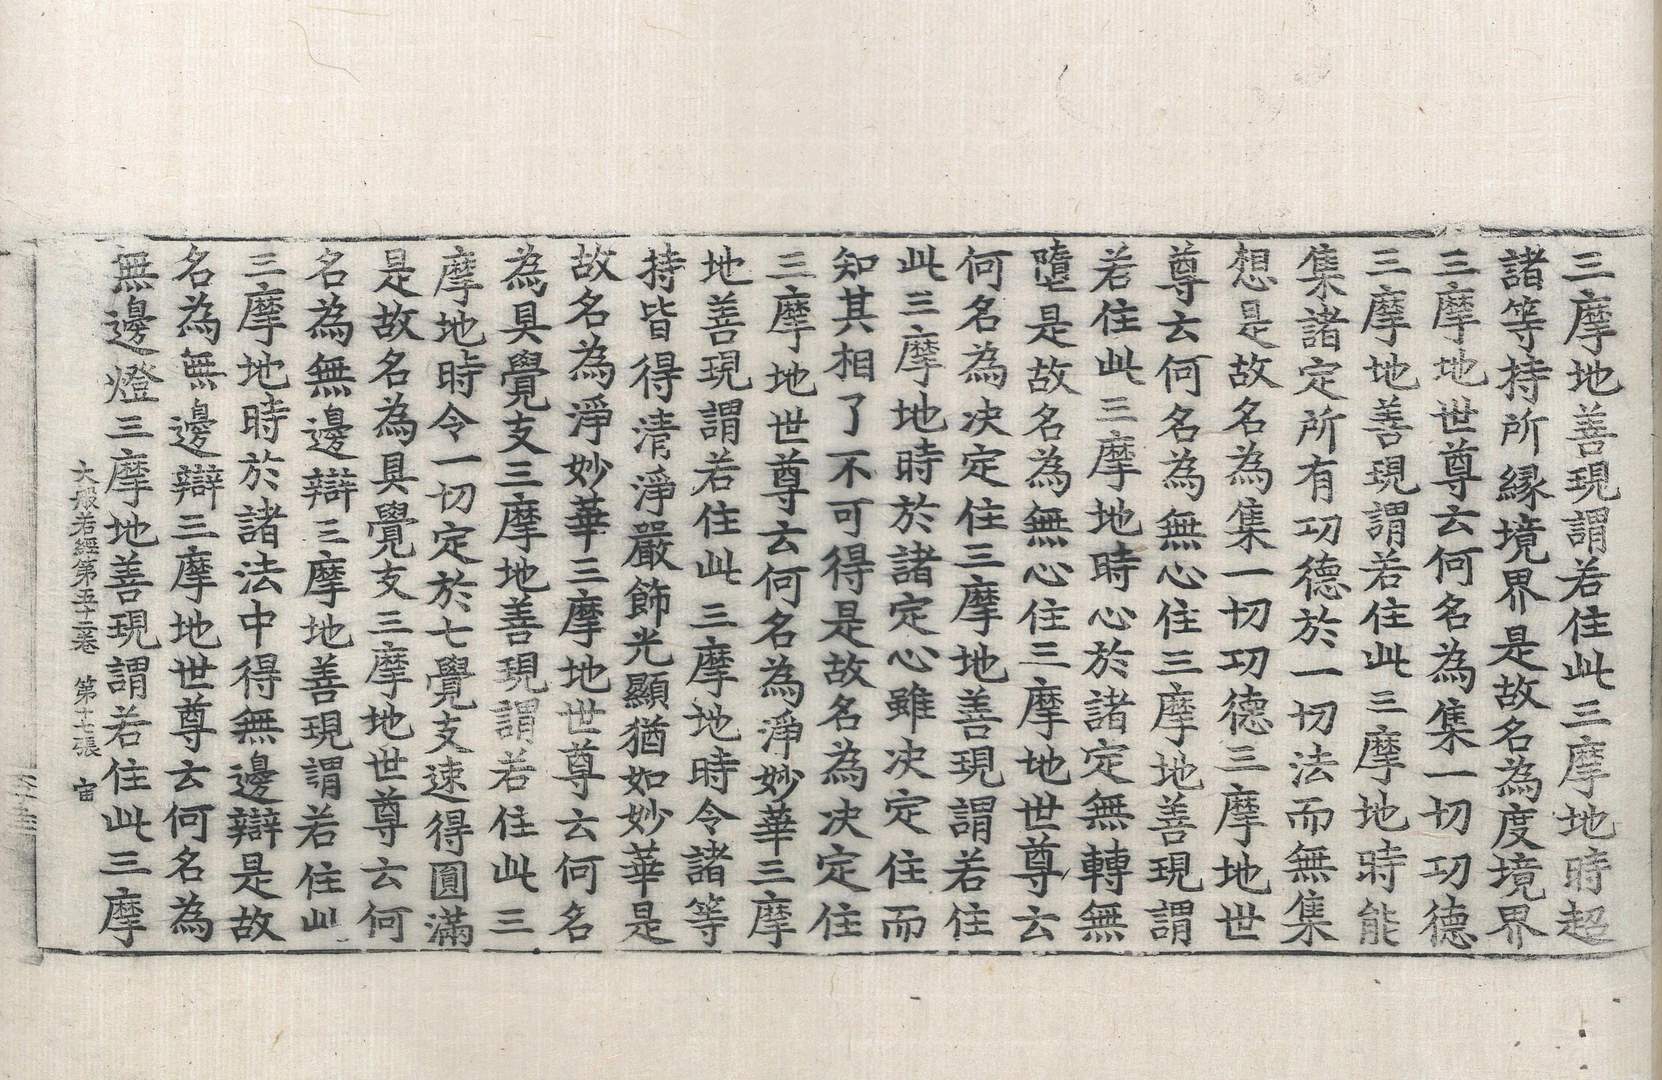 三摩地善現謂若住此三摩地時超
諸等持所縁境界是故名為度境界
三摩地世尊云何名為集一切功德
三摩地善現謂若住此三摩地時能
集諸定所有功德於一切法而無集
想是故名為集一切功德三摩地世
尊云何名為無心住三摩地善現謂
若住此三摩地時心於諸定無轉無
墮是故名為無心住三摩地世尊云
何名為决定住三摩地善現謂若住
此三摩地時於諸定心雖决定住而
知其相了不可得是故名為决定住
三摩地世尊云何名為淨妙華三摩
地善現謂若住此三摩地時令諸等
持皆得清淨嚴飾光顯猶如妙華是
故名為淨妙華三摩地世尊云何名
為具覺支三摩地善現謂若住此三
摩地時令一切定於七覺支速得圓滿
是故名為具覺支三摩地世尊云何
名為無邊辯三摩地善現謂若住此
三摩地時於諸法中得無邊辯是故
名為無邊辯三摩地世尊云何名為
無邊燈三摩地善現謂若住此三摩
大般若經第五十二卷 第十七張 宙